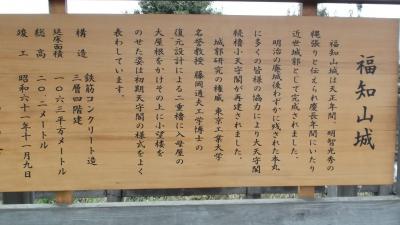 福知山城
福知山城は天正年間、明智光秀の
縄張りと伝えられ慶長年間にいたり
近世城郭として完成されました。
明治の廃城後わずかに残された本丸
に多くの皆様の協力により大天守閣
続櫓小天守閣が再建されました。
城郭研究の権威、東京工業大学
名誉教授 藤岡通夫工学博士の
復元設計による二重櫓に入母屋の
大屋根をかけその上に小望楼を
のせた姿は初期天守閣の様式をよく
表わしています。
構造 鉄筋コンクリート造
三層四階建
延床面積 一〇六三平方メートル
総高 二〇.二メートル
竣工 昭和六十一年十一月九日